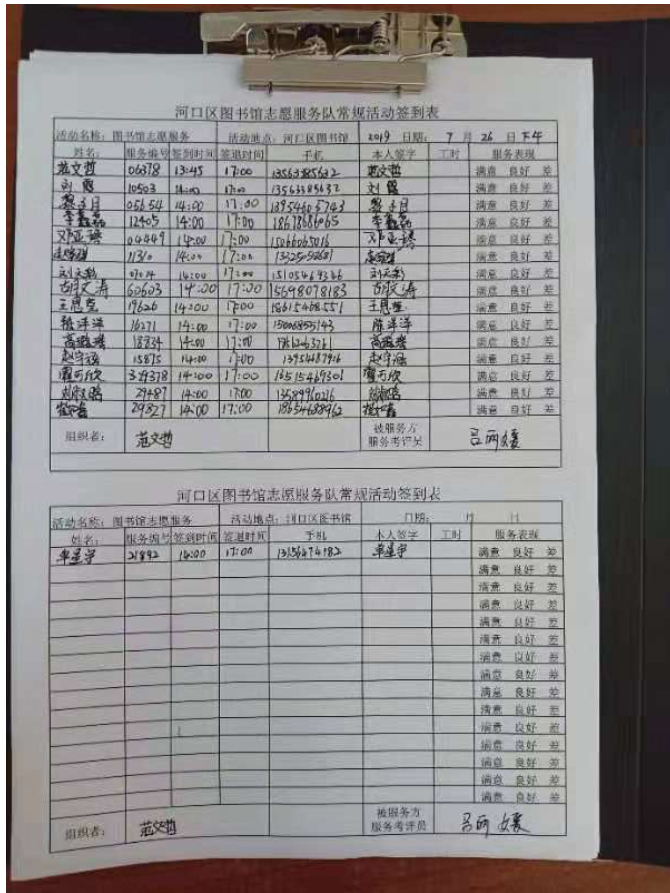 河口区图书馆志愿服务队常规活动签到表
活动名称：图书馆志愿服务 活动地点：河口区图书馆 2019 日期： 7 月 26 日 下午
姓名： 服务编号 签到时间 签退时间 手机 本人签字 工时 服务表现
范文哲 06378 13:45 17:00 13563385632 范文哲 满意 良好 差
刘 10503 14:00 17:00 13563385632 刘 满意 良好 差
05654 14:00 17:00 13954605743 满意 良好 差
李 12405 14:00 17:00 18678686065 李 满意 良好 差
邓亚 04449 14:00 17:00 15066065016 邓亚 满意 良好 差
14:00 17:00 满意 良好 差
刘天 14:00 17:00 15105469346 刘天 满意 良好 差
胡文涛 60603 14:00 17:00 15698078183 胡文涛 满意 良好 差
王恩莹 19626 14:00 17:00 18615468551 王恩莹 满意 良好 差
陈洋洋 16271 14:00 17:00 15006855143 陈洋洋 满意 良好 差
高 18834 14:00 17:00 高 满意 良好 差
赵宇涵 15875 14:00 17:00 13954687916 赵宇涵 满意 良好 差
可欣 329378 14:00 17:00 16515469301 可欣 满意 良好 差
刘 29487 14:00 17:00 13589960216 刘 满意 良好 差
29827 14:00 17:00 18654688962 满意 良好 差
组织者： 范文哲 被服务方
服务考评员 吕丽媛
河口区图书馆志愿服务队常规活动签到表
活动名称：图书馆志愿服务 活动地点：河口区图书馆 日期： 月 日
姓名： 服务编号 签到时间 签退时间 手机 本人签字 工时 服务表现
单星宇 21892 14:00 17:00 13156474182 单星宇 满意 良好 差
满意 良好 差
满意 良好 差
满意 良好 差
满意 良好 差
满意 良好 差
满意 良好 差
满意 良好 差
满意 良好 差
满意 良好 差
满意 良好 差
满意 良好 差
满意 良好 差
满意 良好 差
满意 良好 差
组织者： 范文哲 被服务方
服务考评员 吕丽媛